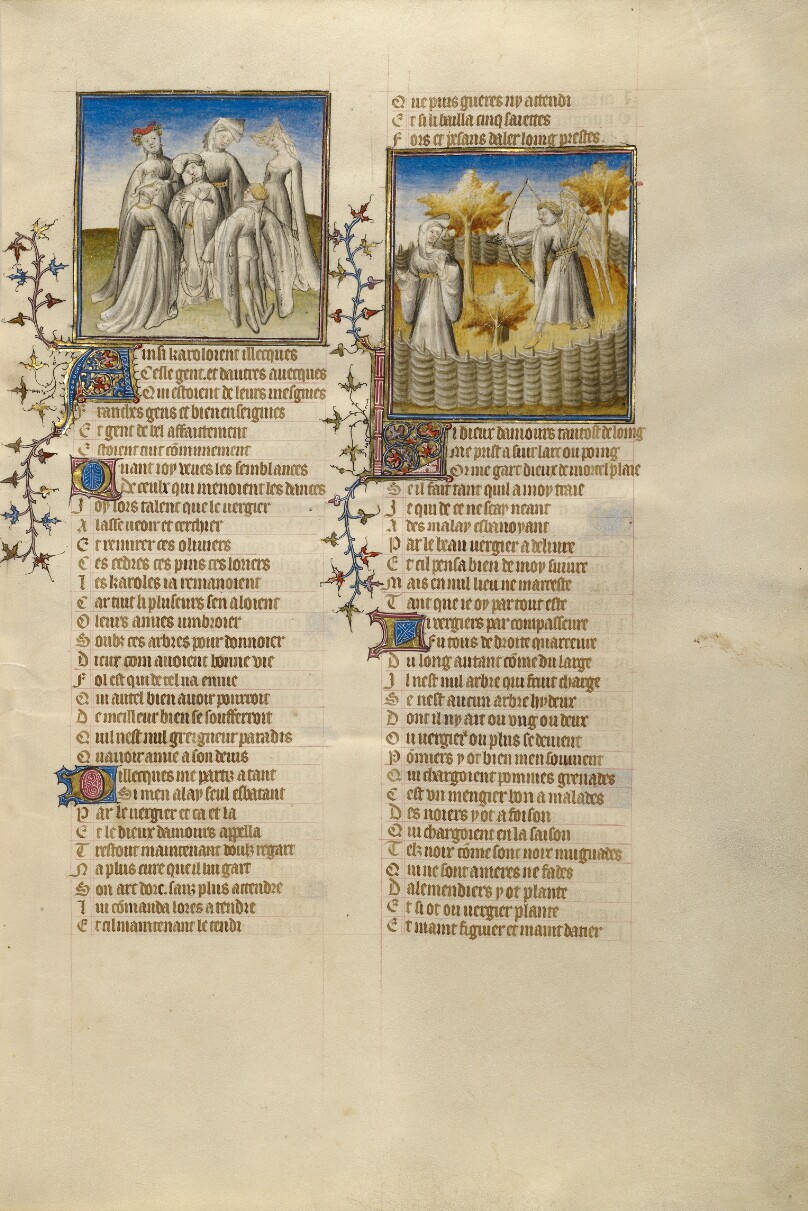 Ainsi karoloient illecques
Ceste gent. et dautres auecques
Qui estoient de leurs mesgnies
Franches gens et bien enseignies
Et gent de bel affaitement
Estoient tuit cõmunement
Quant ioy veues les semblances
De ceulx qui menoient les dances
Joy lors talent que le vergier
Alasse veoir et cerchier
Et remirer ces oliuiers
Ces cedres ces pins ces loriers
Les karoles ia remanoient
Car tuit li pluseurs sen aloient
O leurs amies umbroier
Soubz ces arbres pour donnoier
Dieux com auoient bonne vie
Fol est qui de tel na enuie
Qui autel bien auoir pourroit
De meilleur bien se soufferroit
Quil nest nul greigneur paradis
Quauoir amie a son deuis
Dillecques me partiz a tant
Si men alay seul esbatant
Par le vergier et ca et la
Et le dieux damours appella
Trestout maintenant doulz regart
Na plus cure que il lui gart
Son arc dore. sanz plus attendre
Lui cõmanda lores a tendre
Et cil maintenant le tendi
Que puis gueres ny attendi
Et si li bailla cinq saiettes
Fors et pesans daler loing prestes
Li dieux damours tantost de loing
Me prist a suir larc ou poing
Or me gart dieux de mortel plaie
Se il fait tant quil a moy traie
Je qui de ce ne scay neant
Ades malay esbanoyant
Par le beau vergier a deliure
Et cil pensa bien de moy suiure
Mais en nul lieu ne marreste
Tant que ie oy par tout este
Li vergiers par compasseure
Fu tous de droite quarreure
Du long autant cõme du large
Il nest nul arbre qui fruit charge
Se nest aucun arbre hydeux
Dont il ny ait ou vng ou deux
Ou vergier ou plus se deuient
Põmiers y ot bien men souuient
Qui chargoient pommes grenades
Cest vn mengier bon a malades
Des noiers y ot a foison
Qui chargoient en la saison
Telz noix cõme sont noix muguades
Qui ne sont ameres ne fades
Dalemendiers y ot plante
Et si ot ou vergier plante
Et maint figuier et maint datier